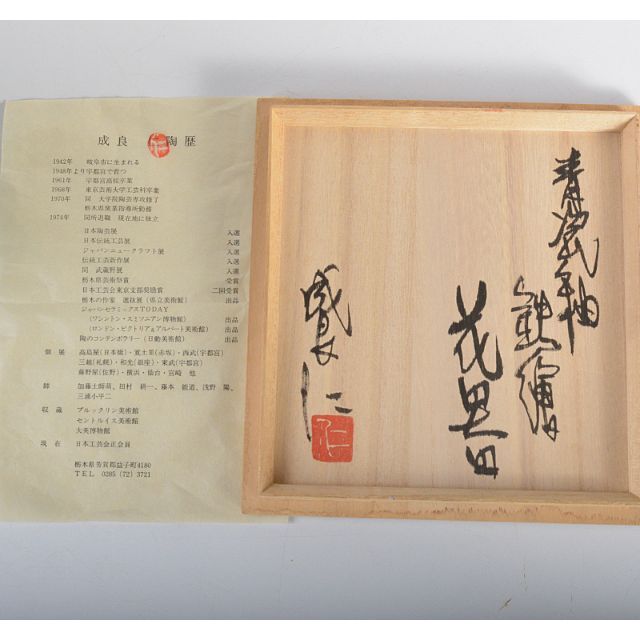 成良 仁 陶歴
1942年 岐阜市に生まれる
1948年より宇都宮で育つ
1961年 宇都宮高校卒業
1968年 東京芸術大学工芸科卒業
1970年 同 大学院陶芸専攻修了
栃木県窯業指導所勤務
1974年 同所退職 現在地に独立
日本陶芸展 入選
日本伝統工芸展 入選
ジャパンニュークラフト展 入選
伝統工芸新作展 入選
同 武蔵野展 入選
栃木県芸術祭賞 受賞
日本工芸会東京支部奨励賞 二回受賞
栃木の作家 選抜展(県立美術館) 出品
ジャパンセラミックスTODAY
(ワシントン・スミソニアン博物館) 出品
(ロンドン・ビクトリア&アルバート美術館) 出品
陶のコンテンポラリー(日動美術館) 出品
個展 高島屋(日本橋)・寛土里(赤坂)・西武(宇都宮)
三越(札幌)・和光(銀座)・東武(宇都宮)
藤野屋(佐野)・横浜・仙台・宮崎 他
師 加藤土師萌、田村 耕一、藤本 能道、浅野 陽、
三浦小平二
収蔵 ブルックリン美術館
セントルイス美術館
大英博物館
現在 日本工芸会正会員
栃木県芳賀郡益子町4180
TEL 0285(72)3721
青瓷釉
鉄繪
花器
成良 仁
仁